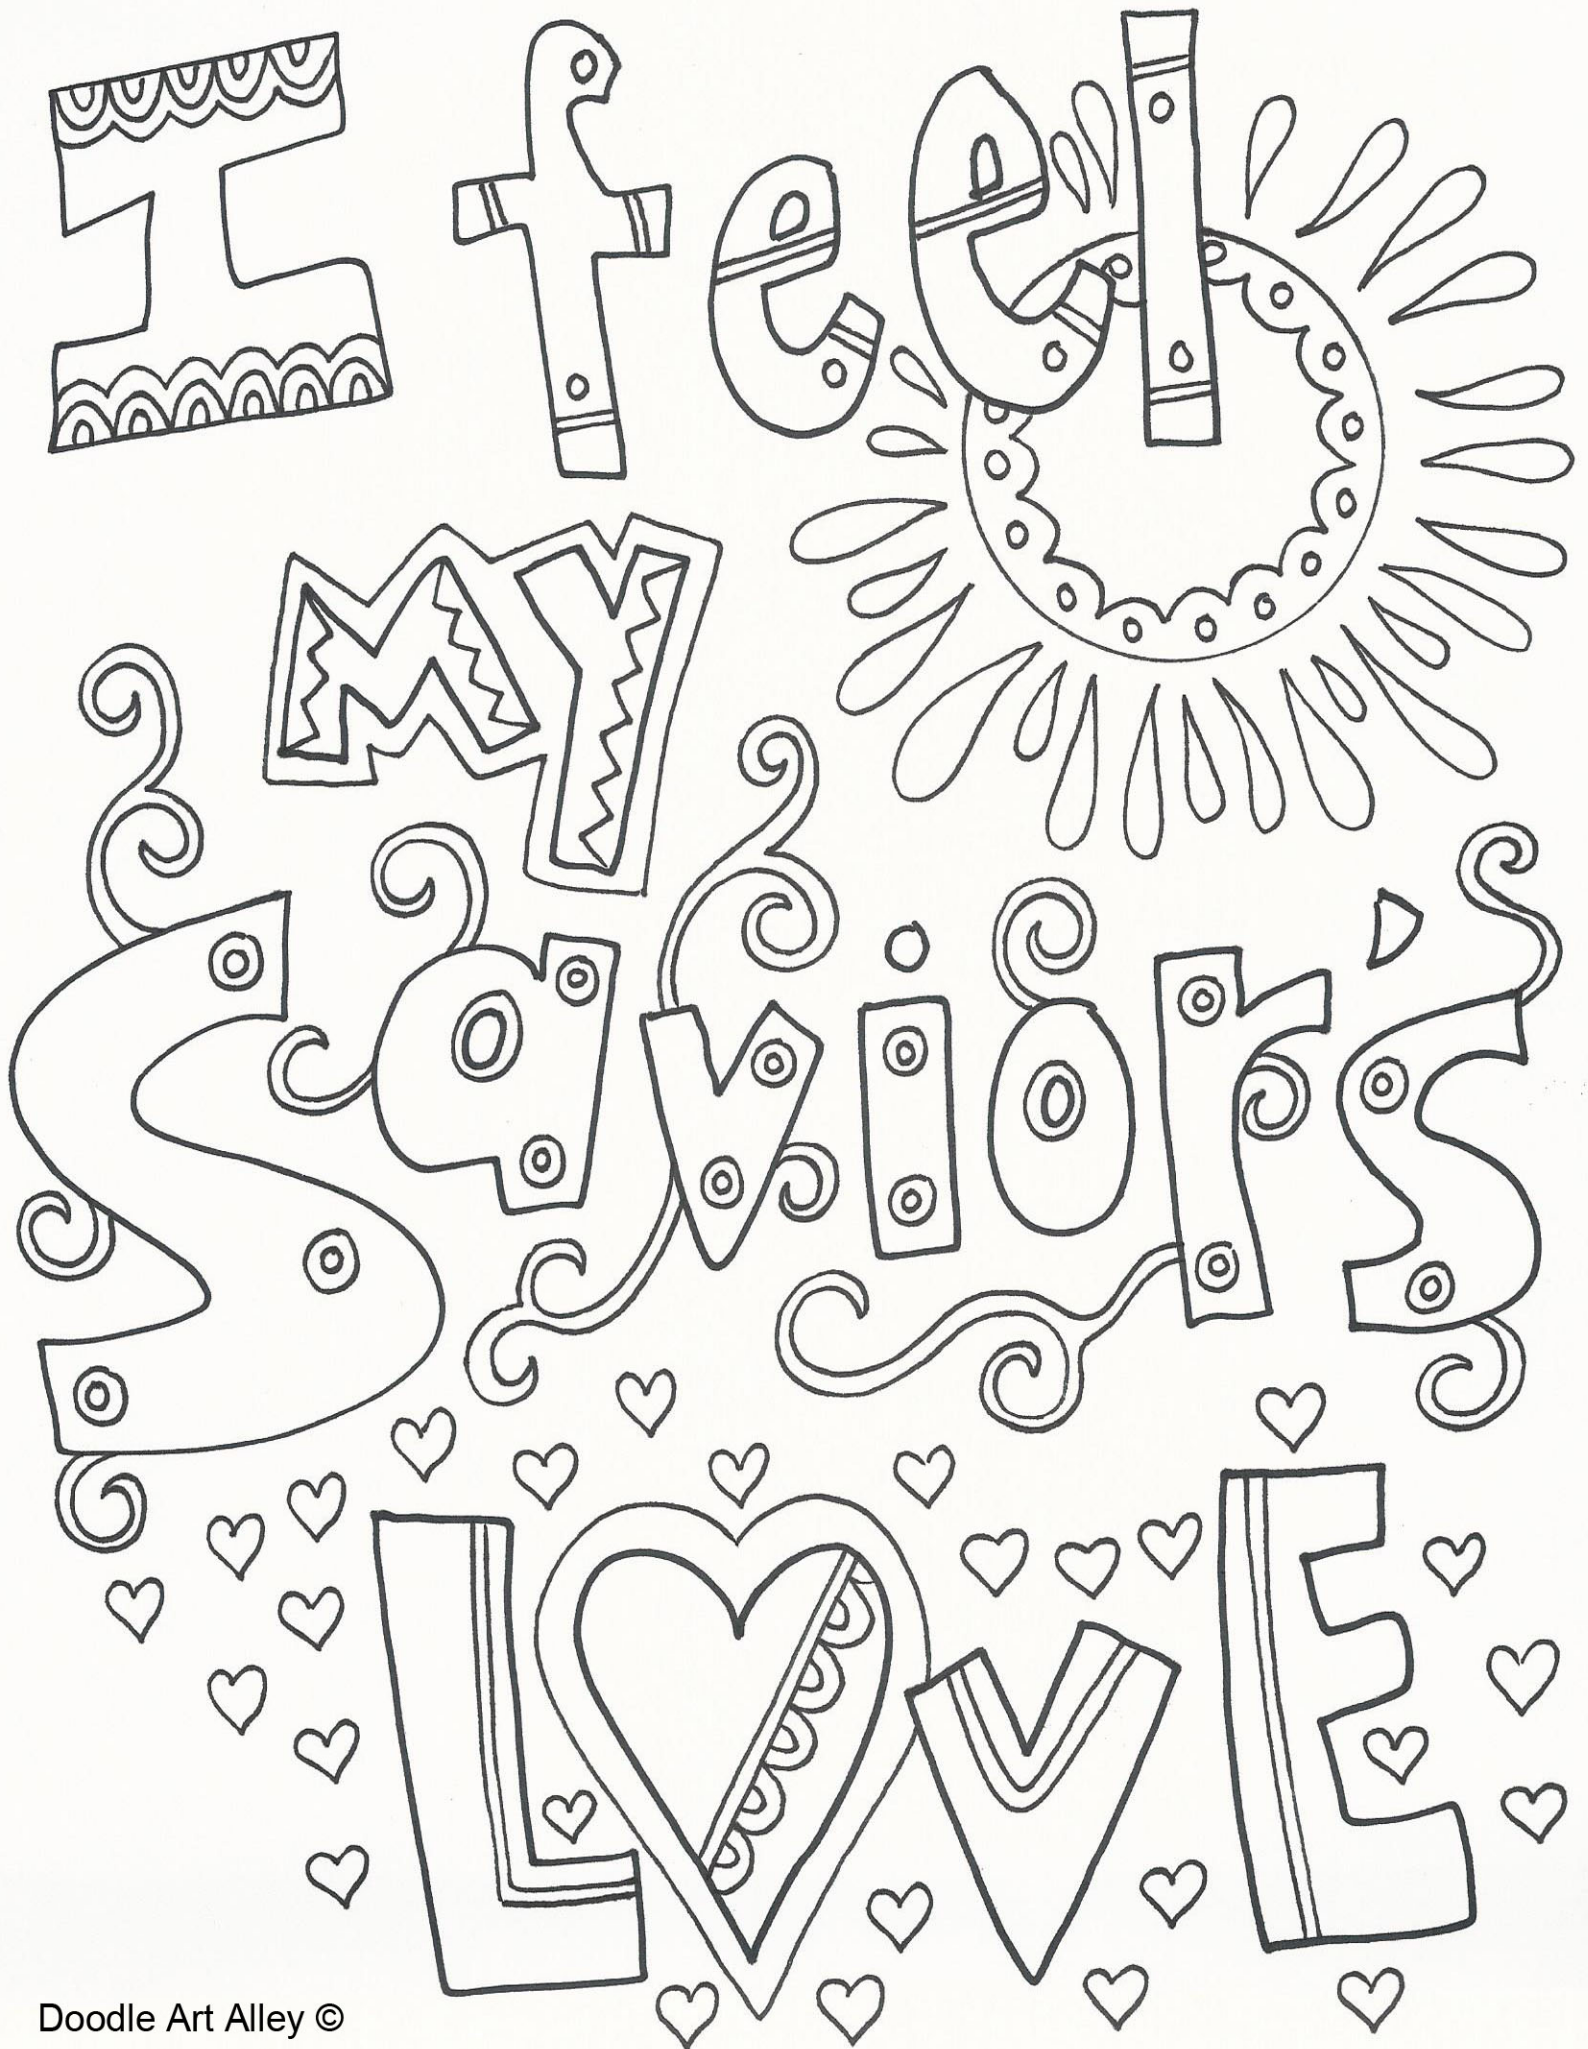 I feel
MY
Savior's
LOVE
Doodle Art Alley ©